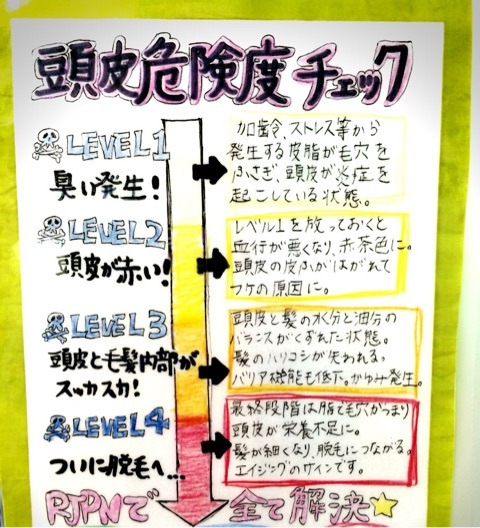 頭皮危険度チェック
LEVEL1
臭い発生!
加齢、ストレス等から
発生する皮脂が毛穴を
ふさぎ、頭皮が炎症を
起こしている状態。
LEVEL2
頭皮が赤い!
レベル1を放っておくと
血行が悪くなり、赤茶色に。
頭皮の皮ふがはがれて
フケの原因に。
LEVEL3
頭皮と毛髪内部が
スッカスカ!
頭皮と髪の水分と油分の
バランスがくずれた状態。
髪のハリコシが失われる。
バリア機能も低下。かゆみ発生。
LEVEL4
ついに脱毛へ...
最終段階は脂で毛穴がつまり
頭皮が栄養不足に。
髪が細くなり、脱毛につながる。
エイジングのサインです。
RJPNで全て解決☆